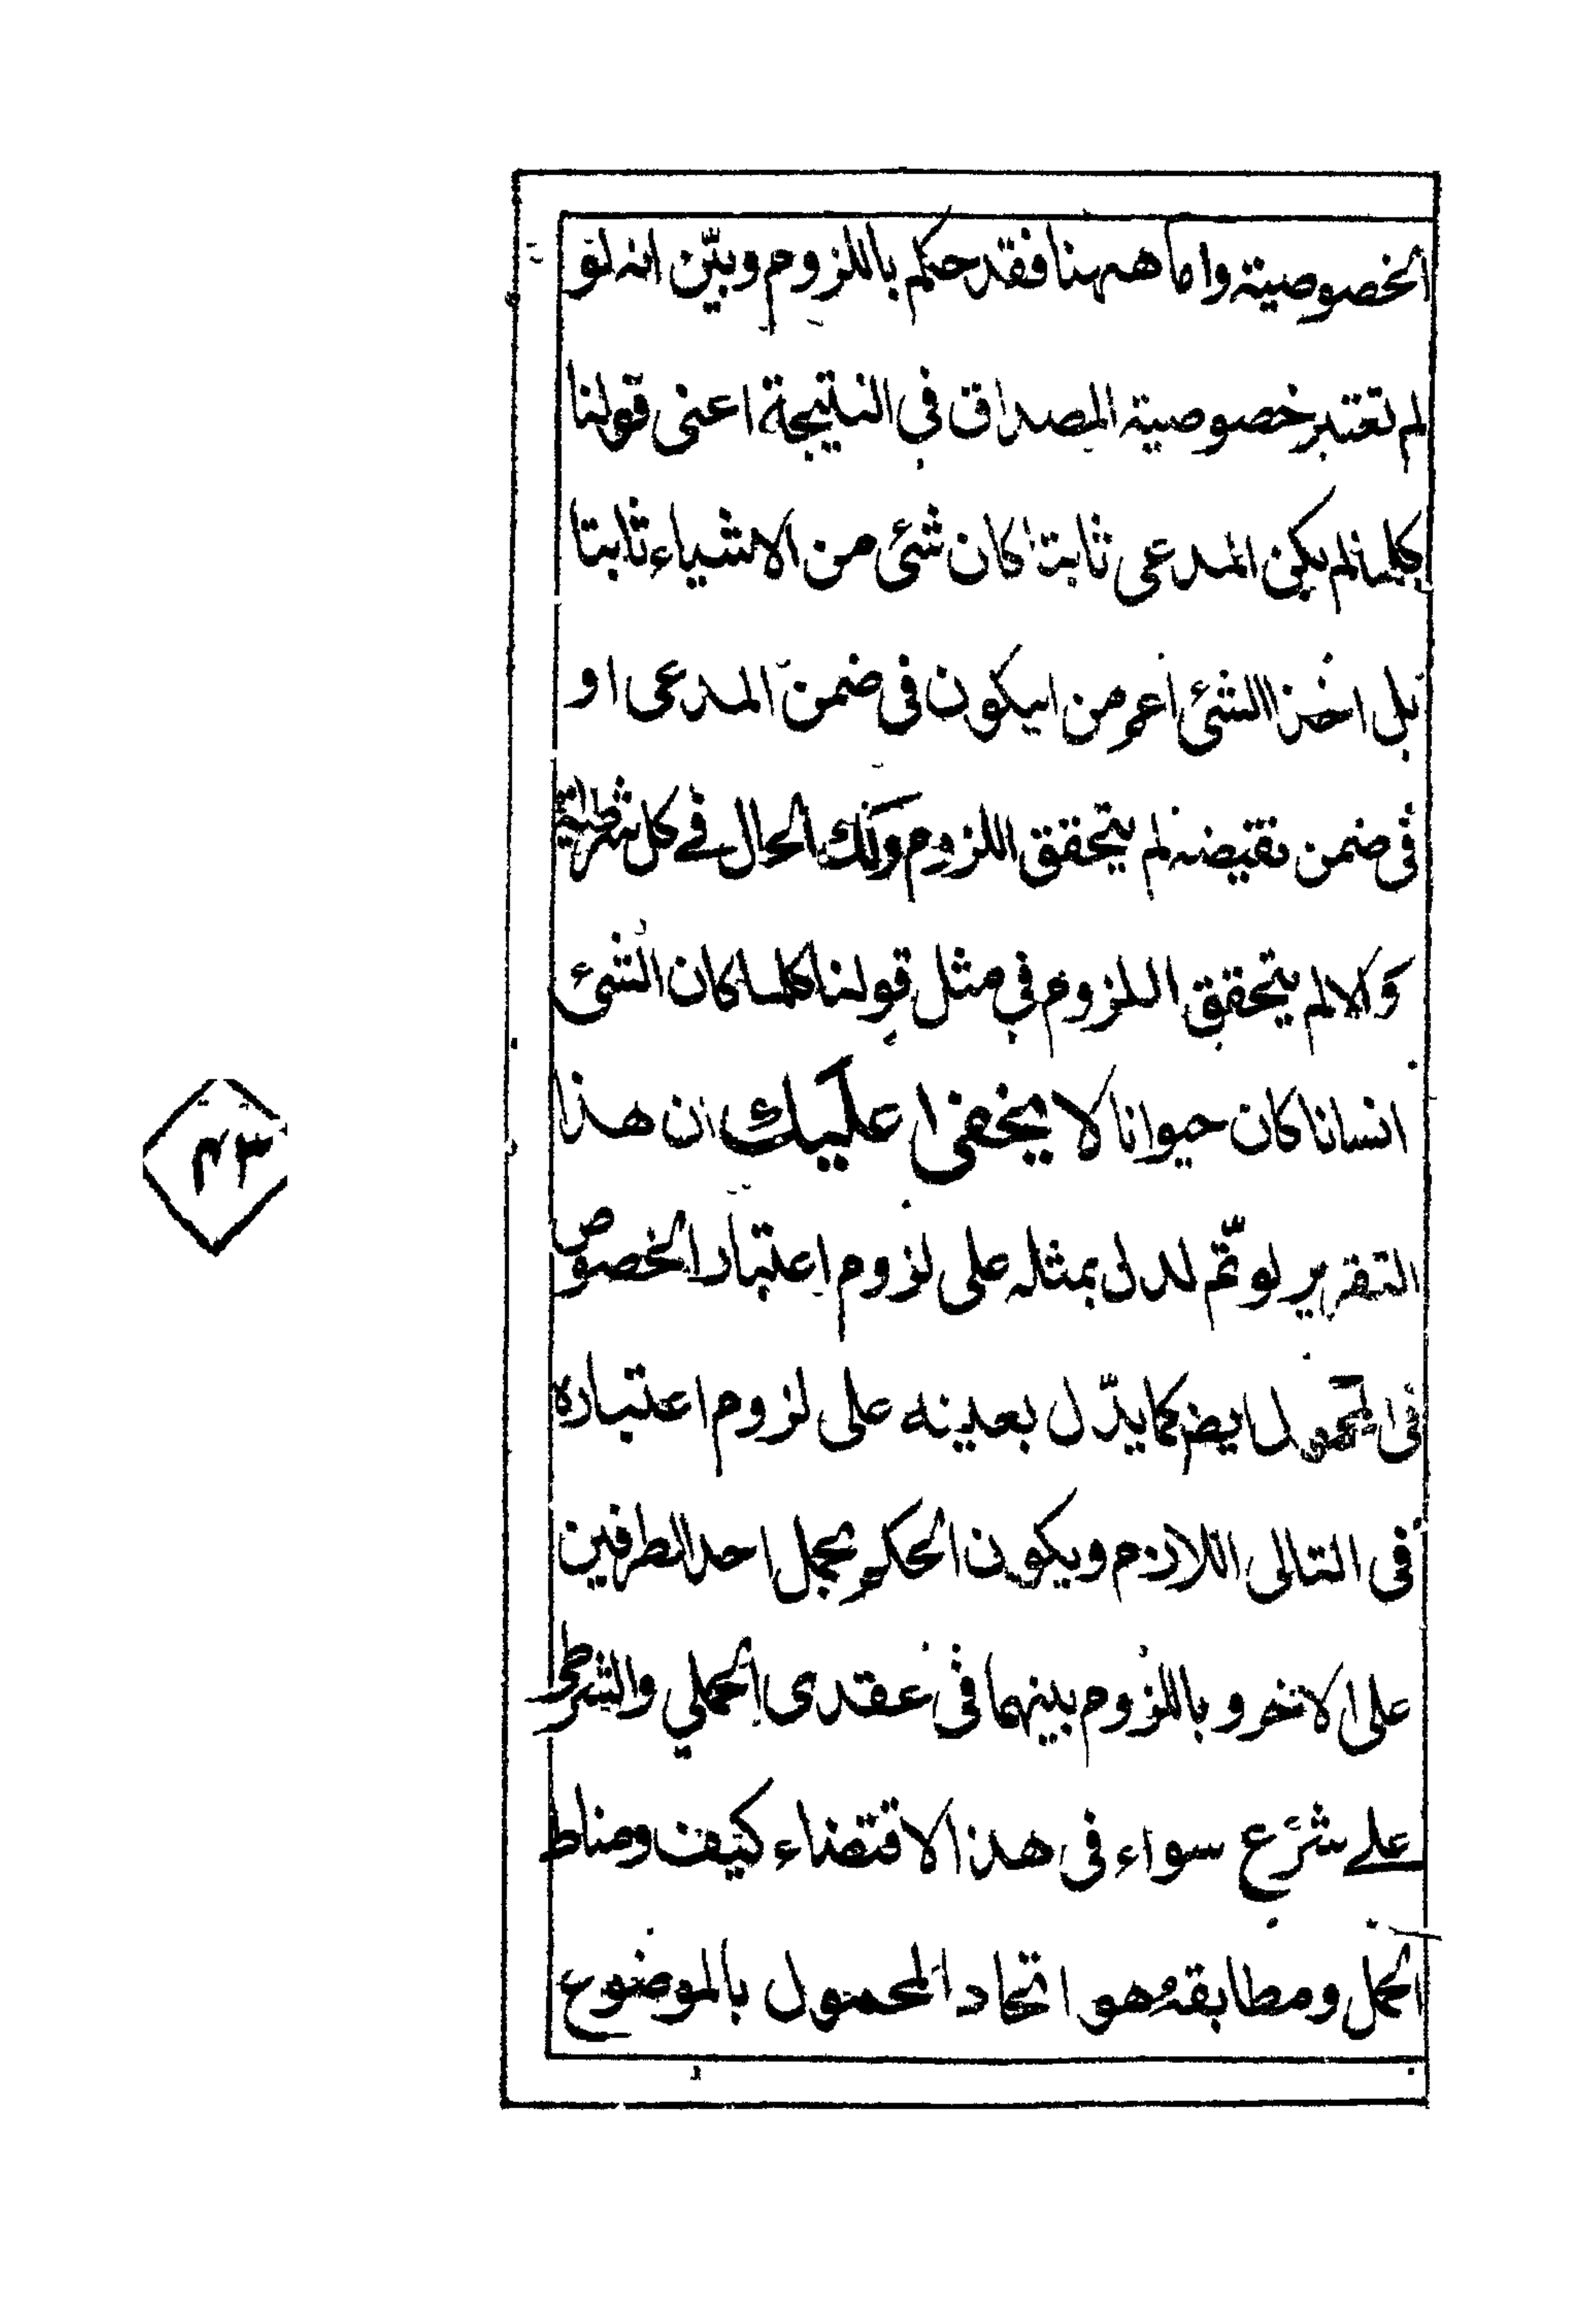 الخصوصية واما ههنا فقد حكم باللزوم وبيّن انه لو
لم تعتبر خصوصية المصداق في النتيجة اعنى قولنا
كلما لم يكن المدعى ثابتا كان شئ من الاشياء ثابتا
بل اخذ الشئ اعم من ايكون فى ضمن المدعى او
فى ضمن نقيضه لم يتحقق اللزوم وكذلك الحال فے كل شرطية
والا لم يتحقق اللزوم في مثل قولنا كلما كان الشئ
انسانا كان حيوانا لا يخفى عليك ان هذا
التقرير لو تمّ لدل بمثله على لزوم اعتبار الخصوص
فى المحمول ايض كما يدّل بعينه على لزوم اعتباره
فى التالى اللازم ويكون الحكم بحمل احد الطرفين
على الاخر وباللزوم بينهما فى عقدى الحملي والشرطى
علے شرع سواء فى هذا الاقتضاء كيف ومناط
الحمل ومطابقه هو اتحاد المحمول بالموضوع
٤٣